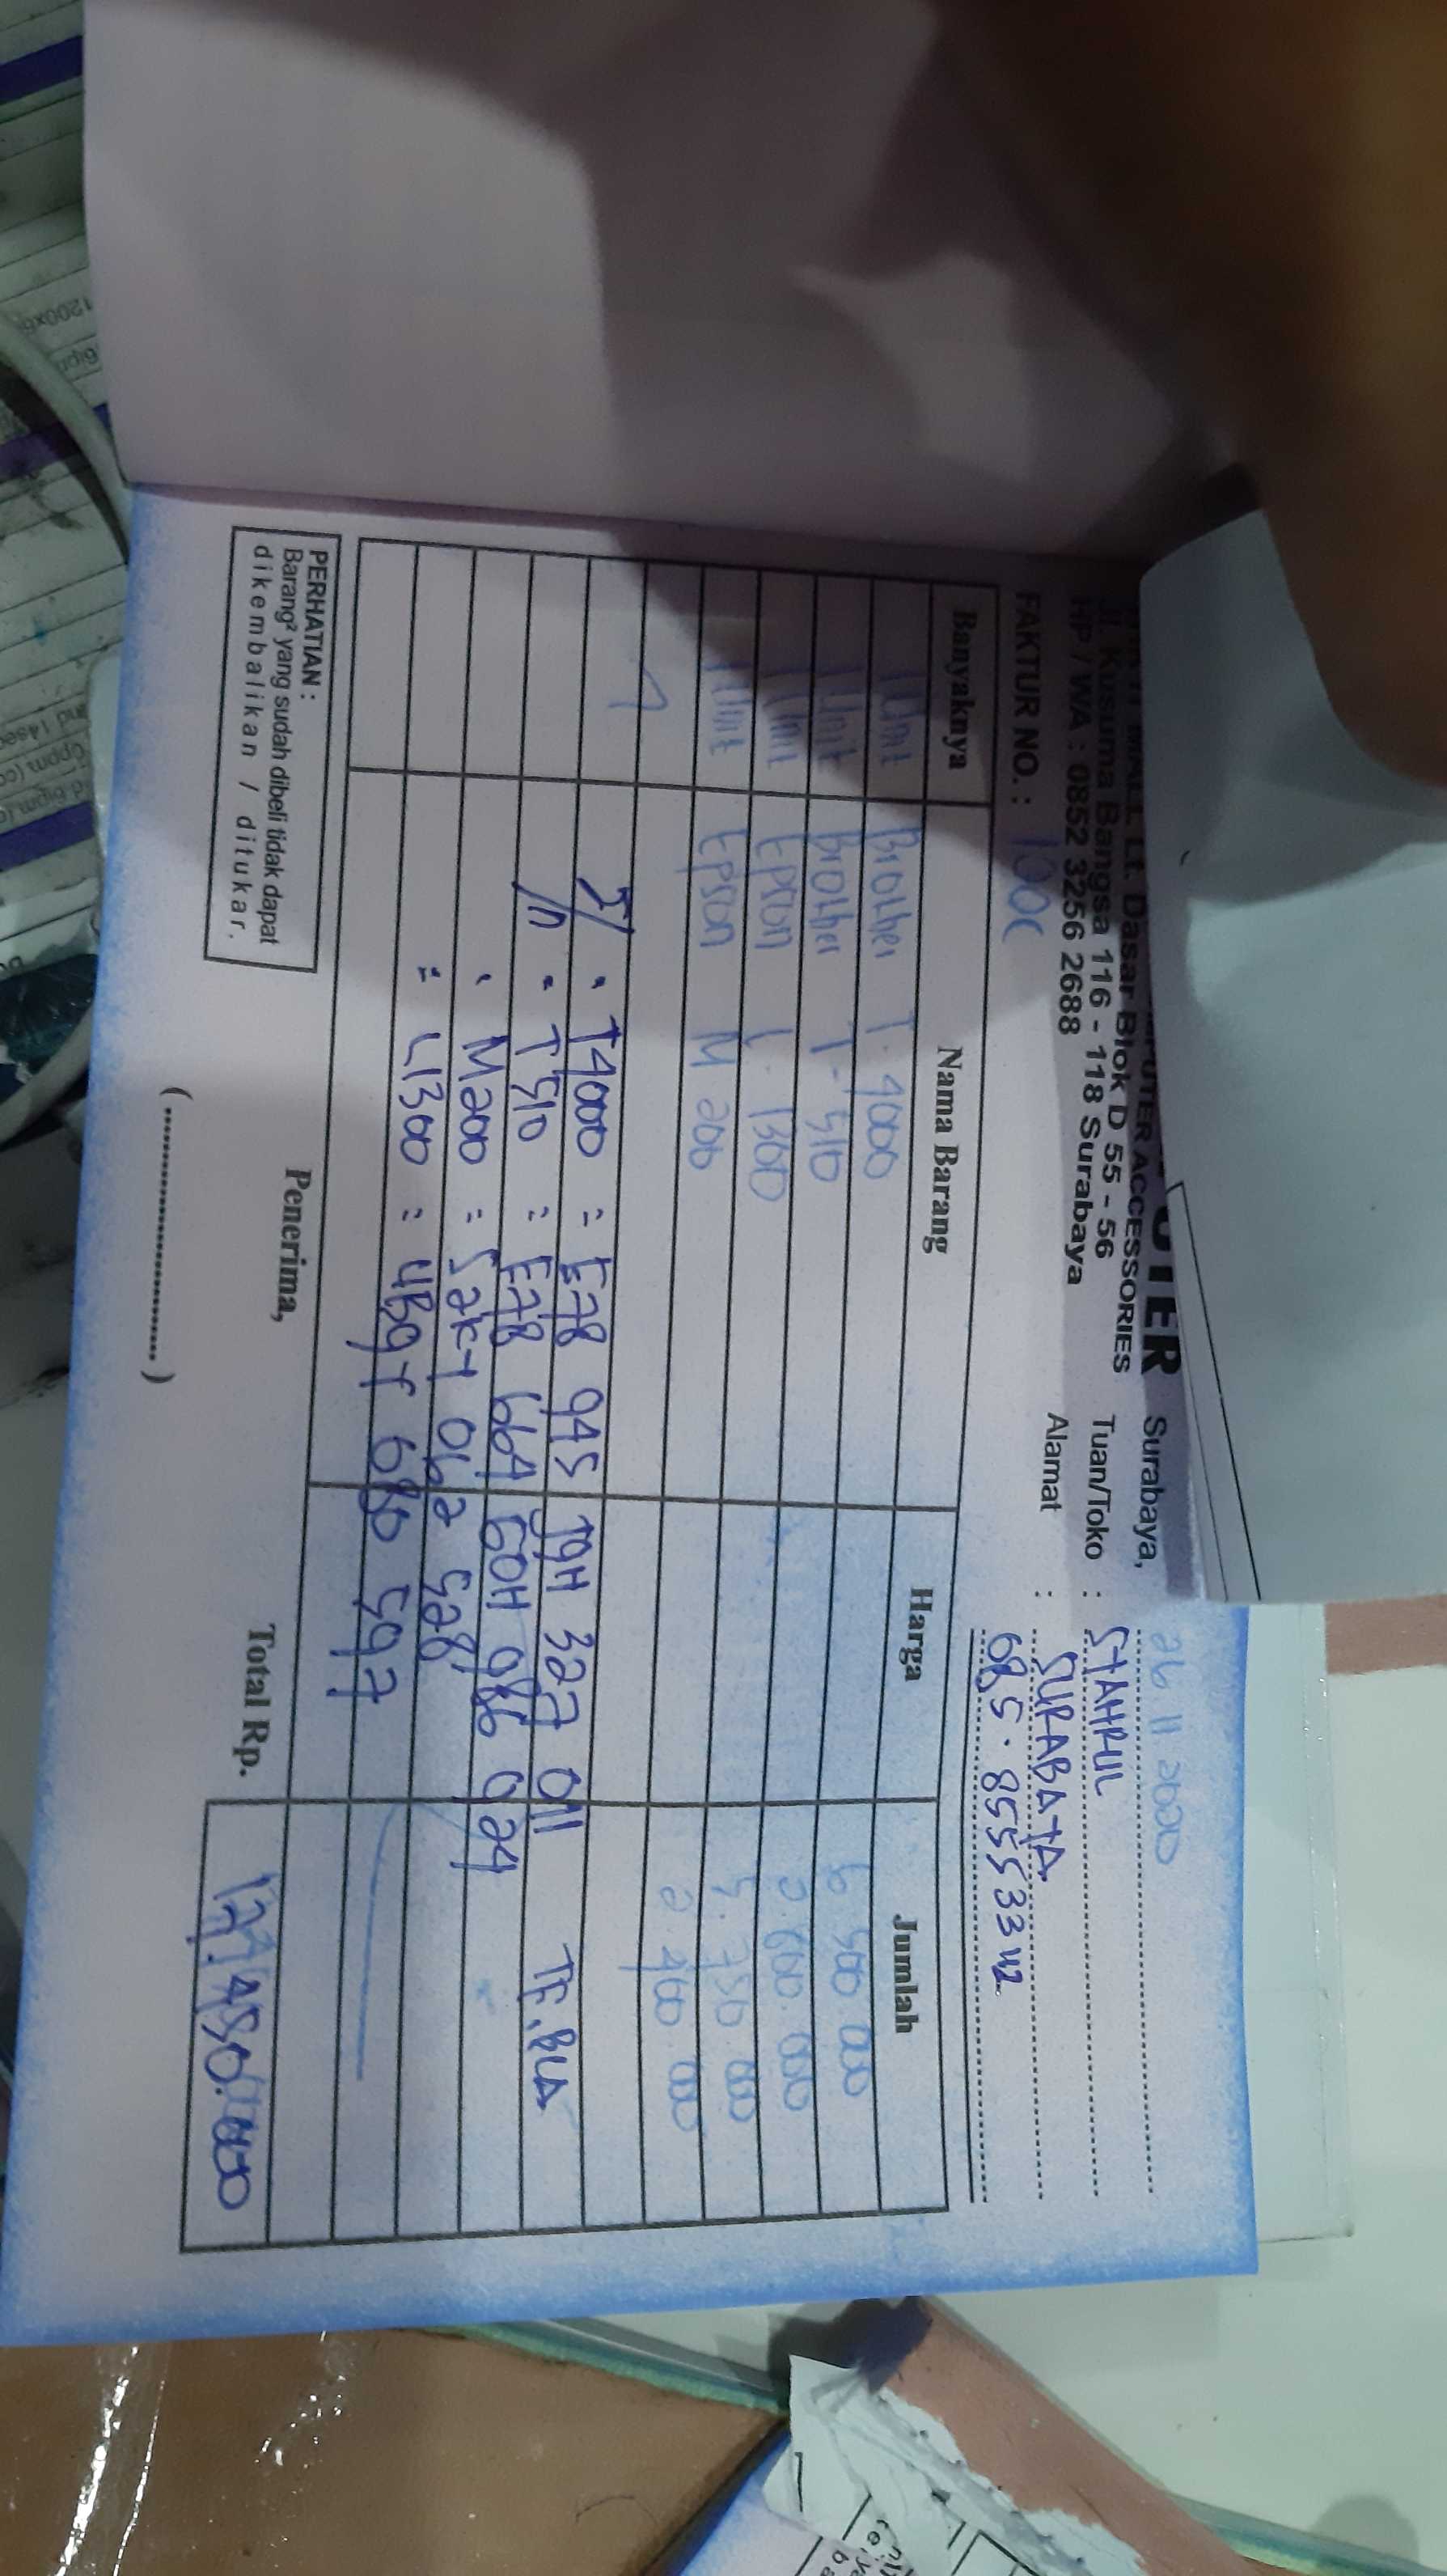 COMPUTER ACCESSORIES
MALL Lt. Dasar Blok D 55 - 56
Jl. Kusuma Bangsa 116 - 118 Surabaya
HP / WA : 0852 3256 2688
Surabaya, 26 11 2020
Tuan/Toko : SYAHRUL
Alamat : SURABAYA
085.85553342
FAKTUR NO. :
Banyaknya Nama Barang Harga Jumlah
1 Unit Brother T-4000 6.500.000
1 Unit Brother T-510 2.600.000
1 Unit Epson L-1300 5.750.000
1 Unit Epson M 200 2.400.000
S/ : T4000 : E78 945 J9H 327 011 TF. BCA
/n : T510 : E78 664 G0H 986 024
: M200 : S2KY 062 528
: L1300 : UB9Y 680 597
Total Rp. 17.450.000
PERHATIAN :
Barang² yang sudah dibeli tidak dapat
dikembalikan / ditukar.
Penerima,
( .............................. )
1200x6